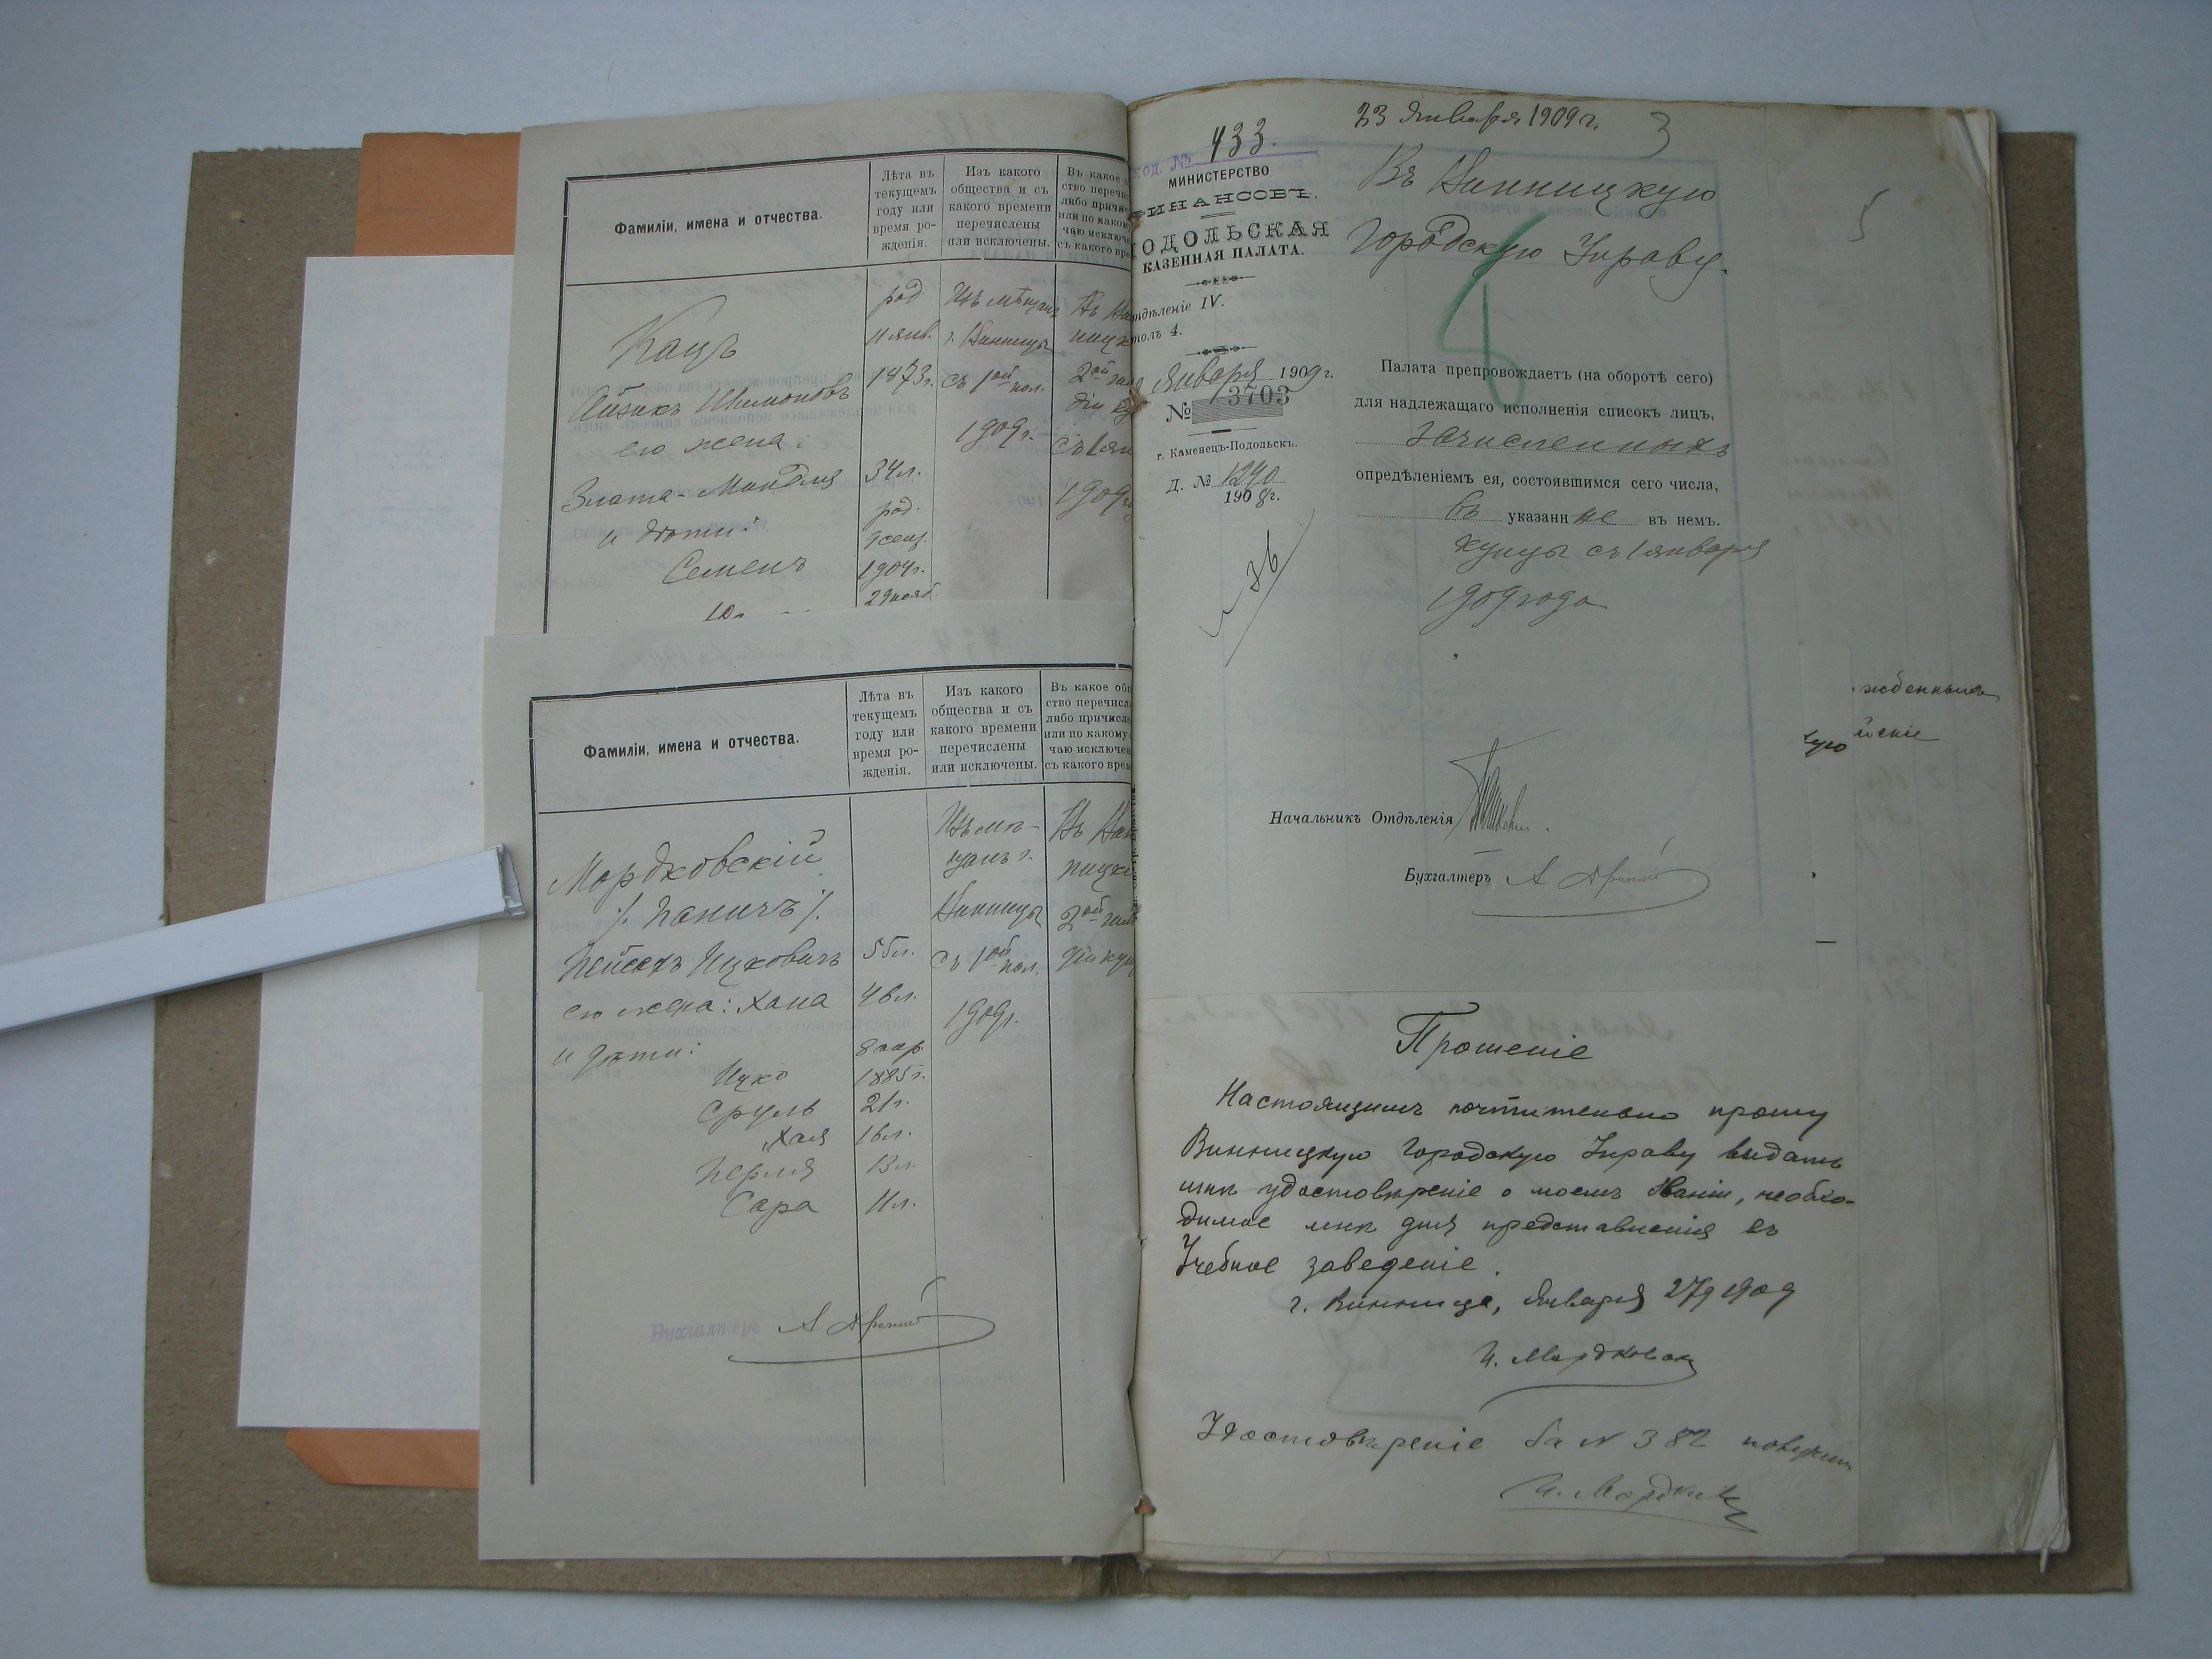 Фамиліи, имена и отчества.
Лѣта въ
текущемъ
году или
время ро-
жденія.
Изъ какого
общества и съ
какого времени
перечислены
или исключены.
Въ какое
ство
либо
или по
съ какого
Кацъ
Айзикъ
его жена:
Злата-Миндля
и дѣти:
Семенъ
род.
11 янв.
1873 г.
34 л.
род.
1904 г.
29 нояб.
Изъ мѣщанъ
г. Винницы
съ 1ой пол.
1909 г.
Въ
2ой
1909
Фамиліи, имена и отчества.
Лѣта въ
текущемъ
году или
время ро-
жденія.
Изъ какого
общества и съ
какого времени
перечислены
или исключены.
Въ какое
ство
либо
или по какому
съ какого
Мордковскій
Пейсахъ Ицковичъ
его жена: Хана
и дѣти:
Ицко
Сруль
Хая
Перля
Сара
55 л.
46 л.
8 апр.
1885 г.
21 г.
16 л.
13 л.
11 л.
Изъ мѣ-
щанъ г.
Винницы
съ 1ой пол.
1909 г.
Въ
2ой
Бухгалтеръ
ход. № 433.
МИНИСТЕРСТВО
ФИНАНСОВЪ.
ПОДОЛЬСКАЯ
КАЗЕННАЯ ПАЛАТА.
Отдѣленіе IV.
Столъ 4.
Января 1909 г.
№ 3703
г. Каменецъ-Подольскъ.
Д. № 1290
1908 г.
23 Января 1909 г.
3
Въ Винницкую
Городскую Управу.
4
5
Палата препровождаетъ (на оборотѣ сего)
для надлежащаго исполненія списокъ лицъ,
зачисленныхъ
опредѣленіемъ ея, состоявшимся сего числа,
въ указанные въ немъ.
купцы съ 1 января
1909 года
Начальникъ Отдѣленія
Бухгалтеръ
жденныхъ
йскіе
Прошеніе
Настоящимъ почтительно прошу
Винницкую Городскую Управу выдать
мнѣ удостовѣреніе о моемъ званіи, необхо-
димое мнѣ для представленія въ
Учебное заведеніе.
г. Винница, Января 27 д 1909
И. Мордковскій
Удостовѣреніе за N 382 получилъ
И.